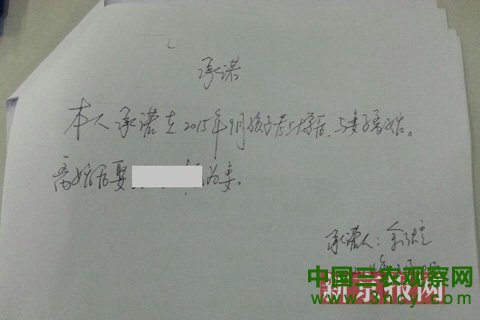 承诺
本人承诺在2015年9月孩子考上大学后，与妻子离婚。
离婚后娶 为妻。
承诺人：
新京报网
中国三农观察网
www.3ncy.com